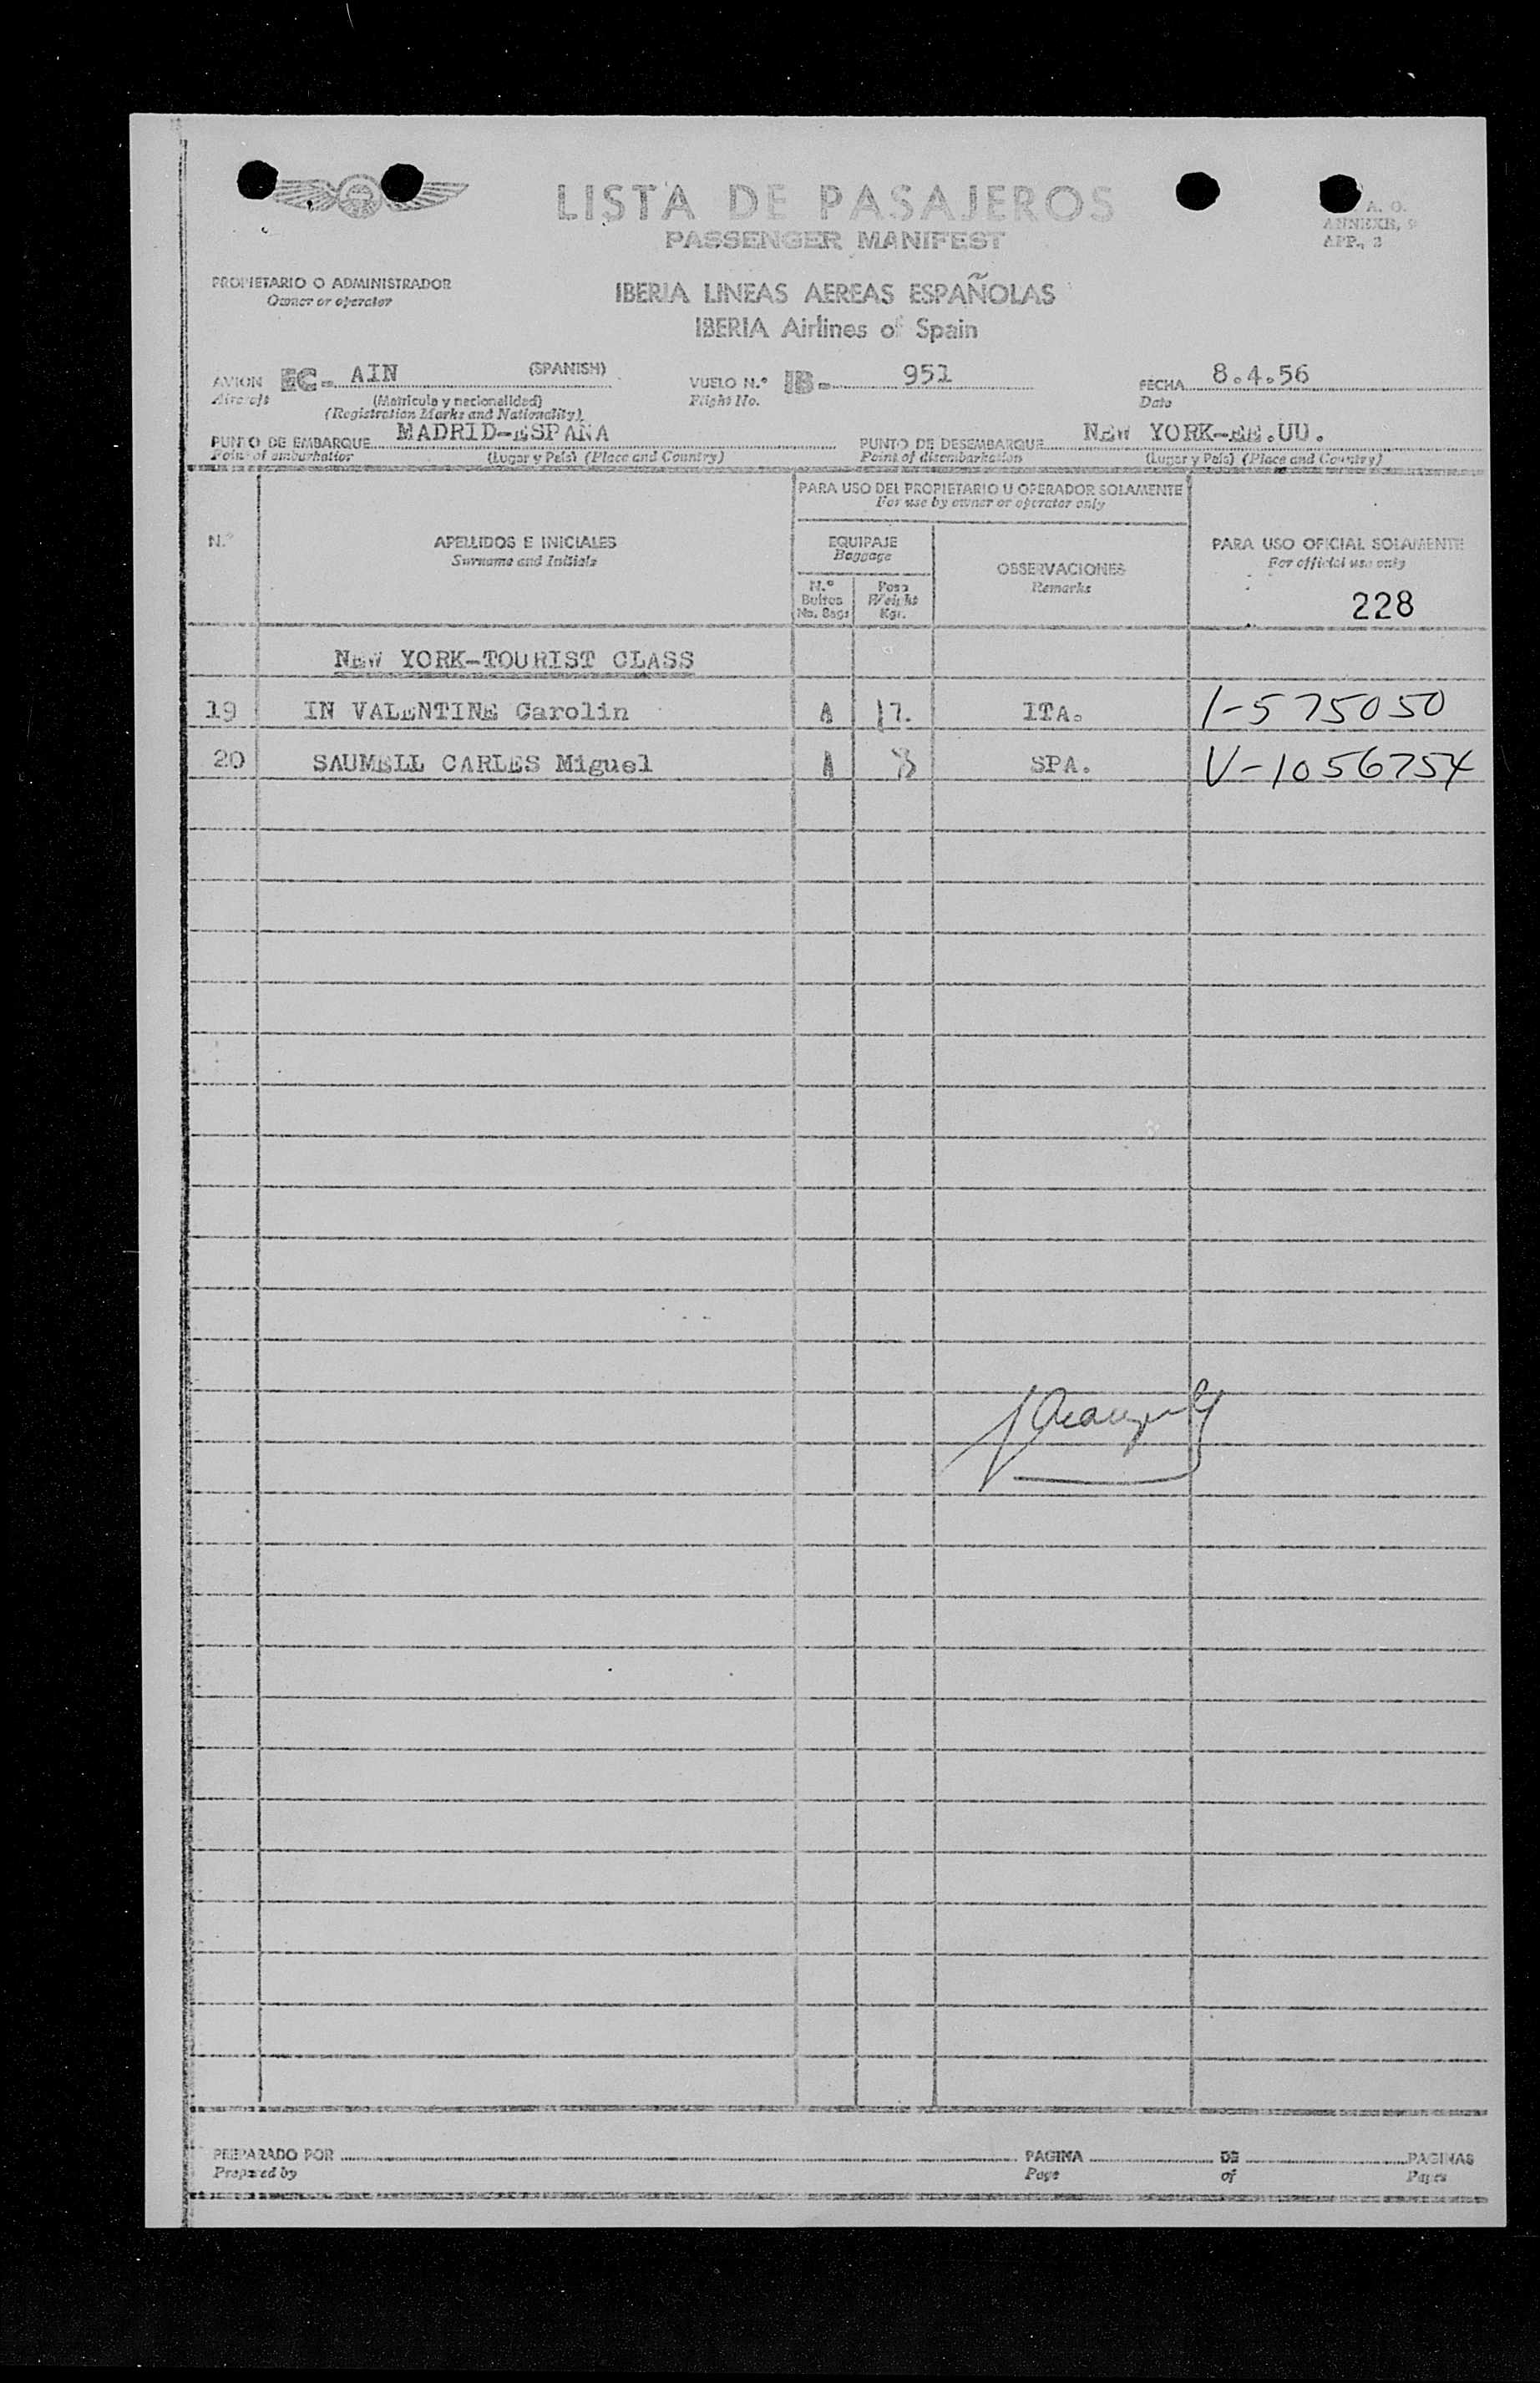 LISTA DE PASAJEROS
PASSENGER MANIFEST
A. O.
ANNEXE, 9
APP., 2
PROPIETARIO O ADMINISTRADOR
Owner or operator
IBERIA LINEAS AEREAS ESPAÑOLAS
IBERIA Airlines of Spain
AVION EC- AIN (SPANISH) VUELO N.º IB- 951 FECHA 8.4.56
Aircraft (Matricula y nacionalidad) Flight No. Date
(Registration Marks and Nationality)
PUNTO DE EMBARQUE MADRID-ESPAÑA PUNTO DE DESEMBARQUE NEW YORK-EE.UU.
Point of embarkation (Lugar y Pais) (Place and Country) Point of disembarkation (Lugar y Pais) (Place and Country)
PARA USO DEL PROPIETARIO U OPERADOR SOLAMENTE
For use by owner or operator only
N.º APELLIDOS E INICIALES EQUIPAJE OBSERVACIONES PARA USO OFICIAL SOLAMENTE
Surname and Initials Baggage Remarks For official use only
N.º Bultos Peso
No. Bags Weight Kgr.
228
NEW YORK-TOURIST CLASS
19 IN VALENTINE Carolin 17. ITA. 1-575050
20 SAUMELL CARLES Miguel SPA. V-1056754
PREPARADO POR PAGINA DE PAGINAS
Prepared by Page of Pages